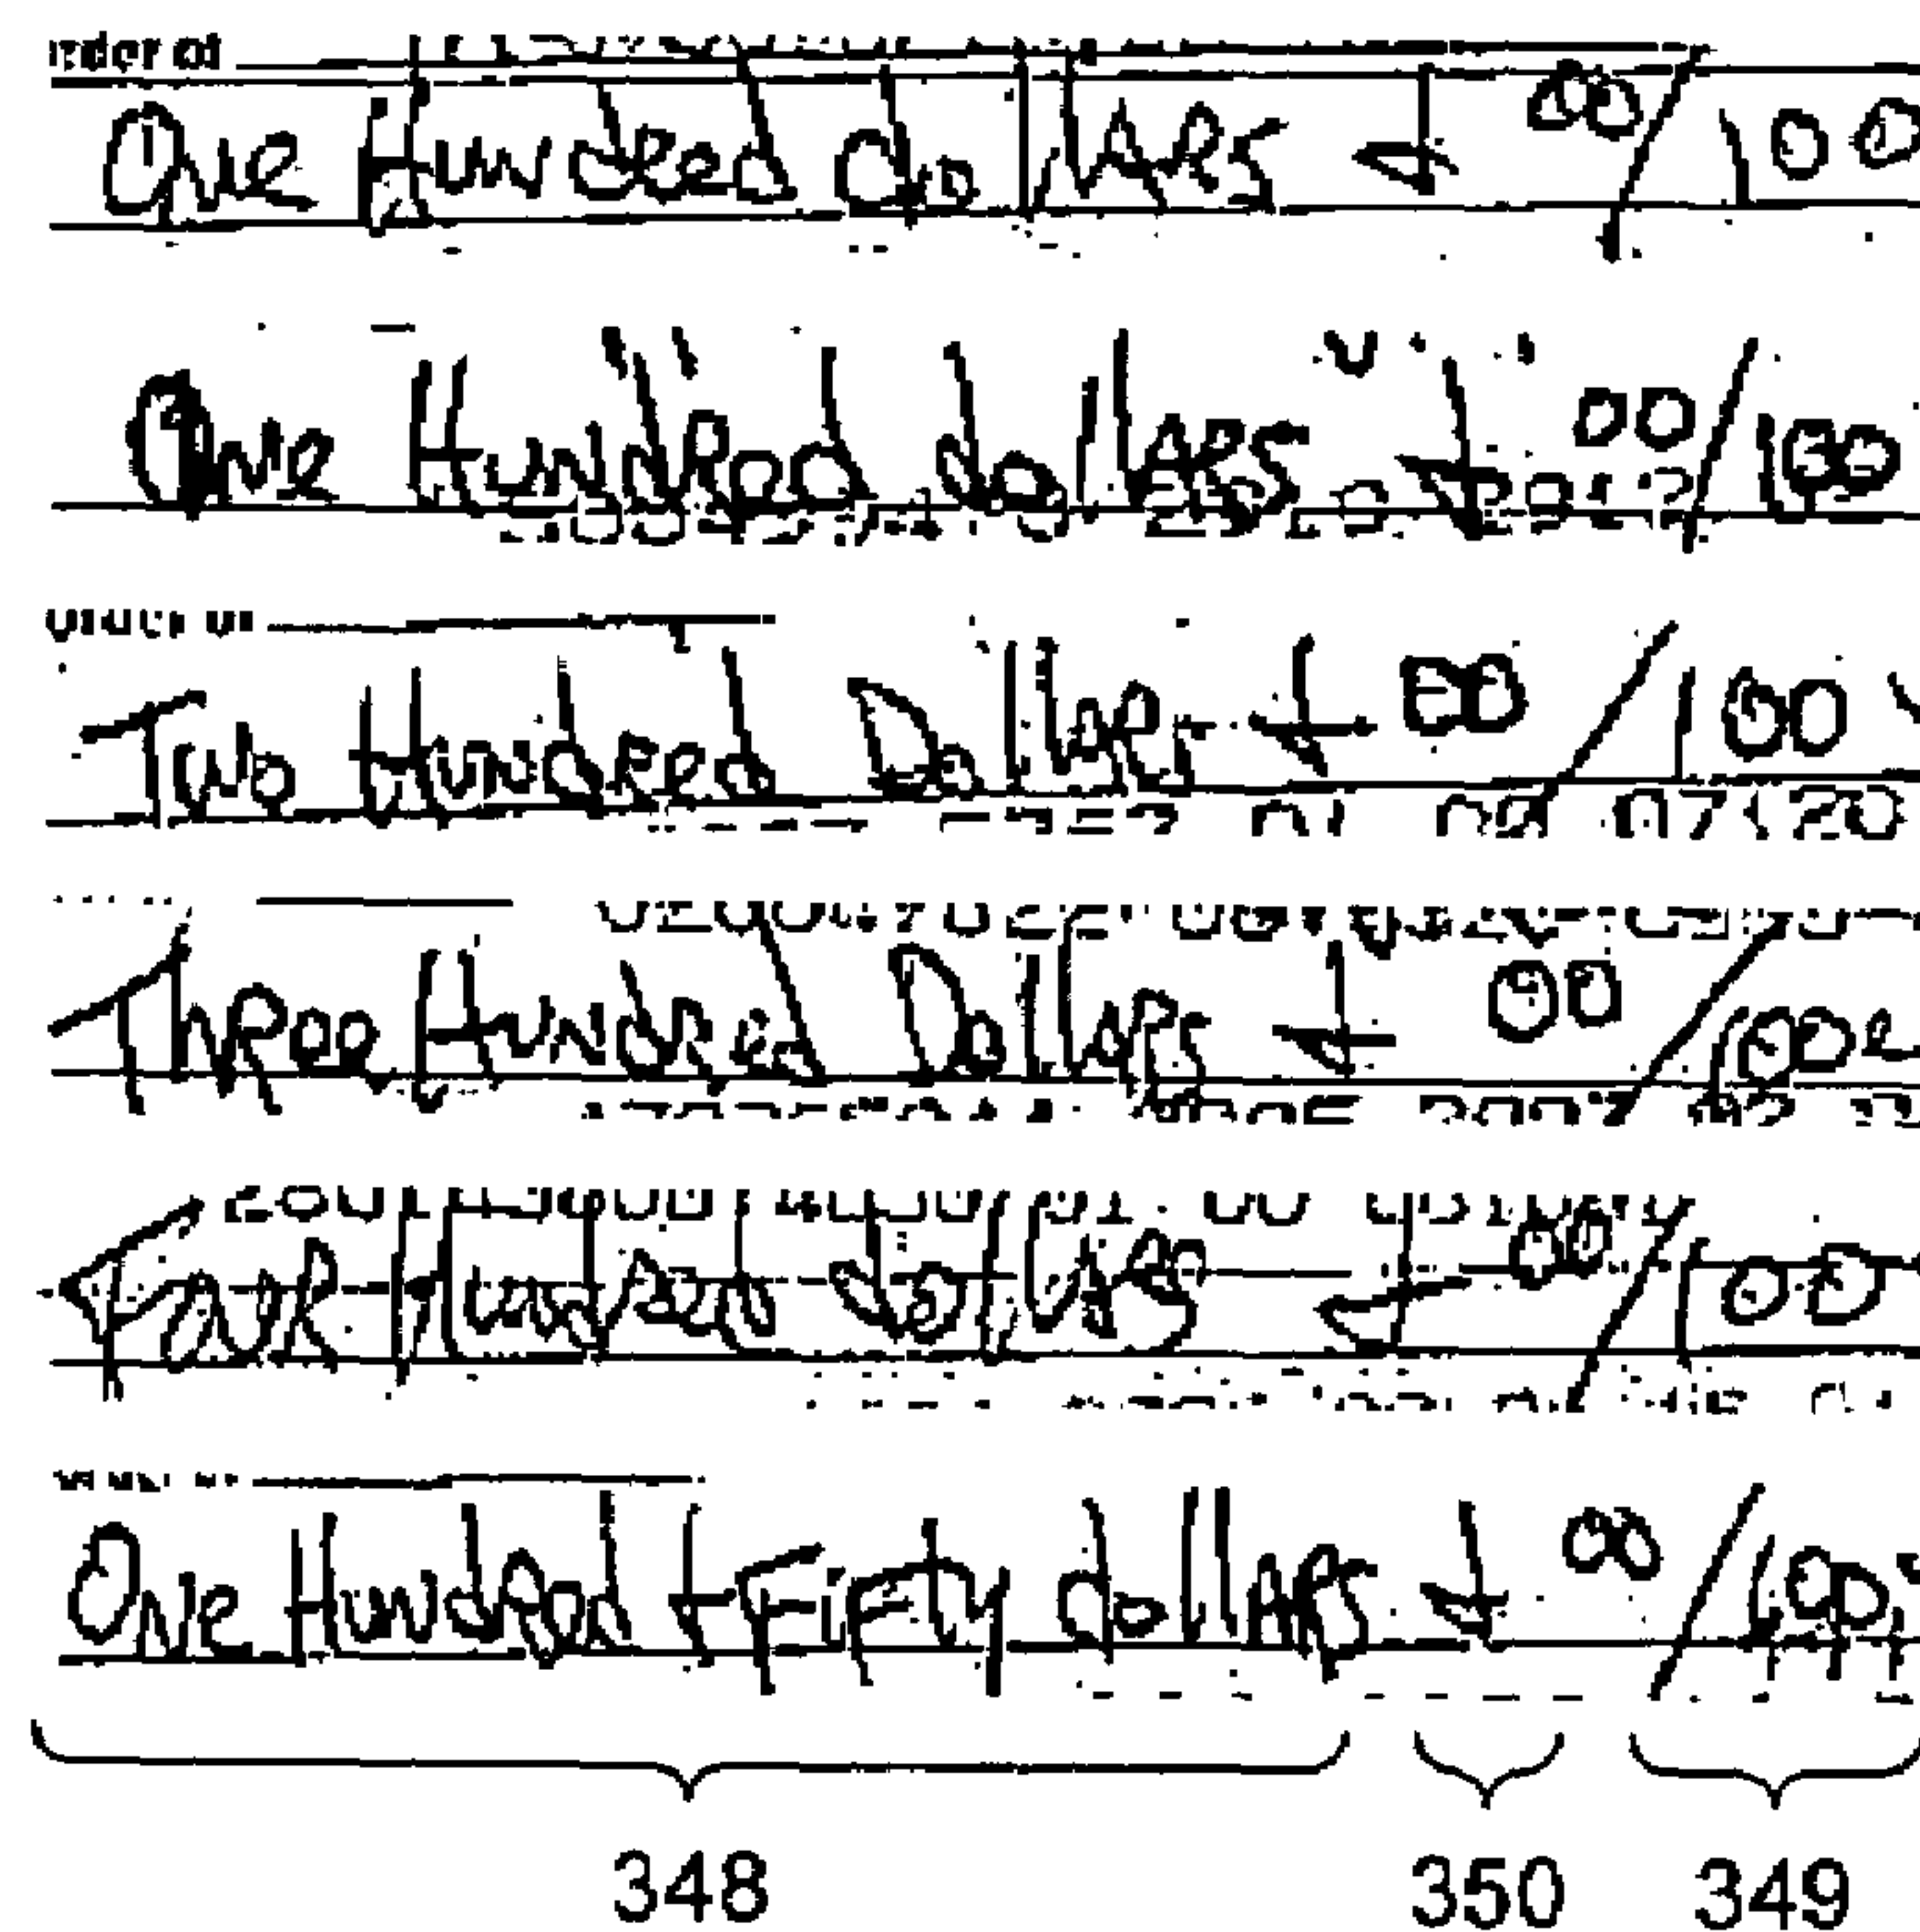 One Hundred dollars + 00/100
One Hundred dollars + 00/100
Two Hundred Dollars + 00/100
Three Hundred Dollars + 00/100
Hundred Dollars + 00/100
One Hundred + Fifty dollars + 00/100
348 350 349